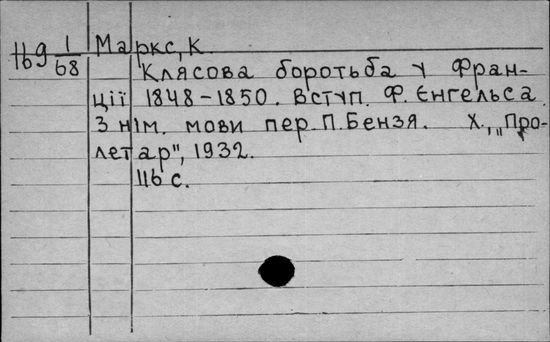 1169 1/68 Маркс, К.
Клясова боротьба у Фран-
ції 1848-1850. Вступ. Ф. Єнгельса
З нім. мови пер. П. Бензя. Х., „Про-
летар", 1932.
116 с.